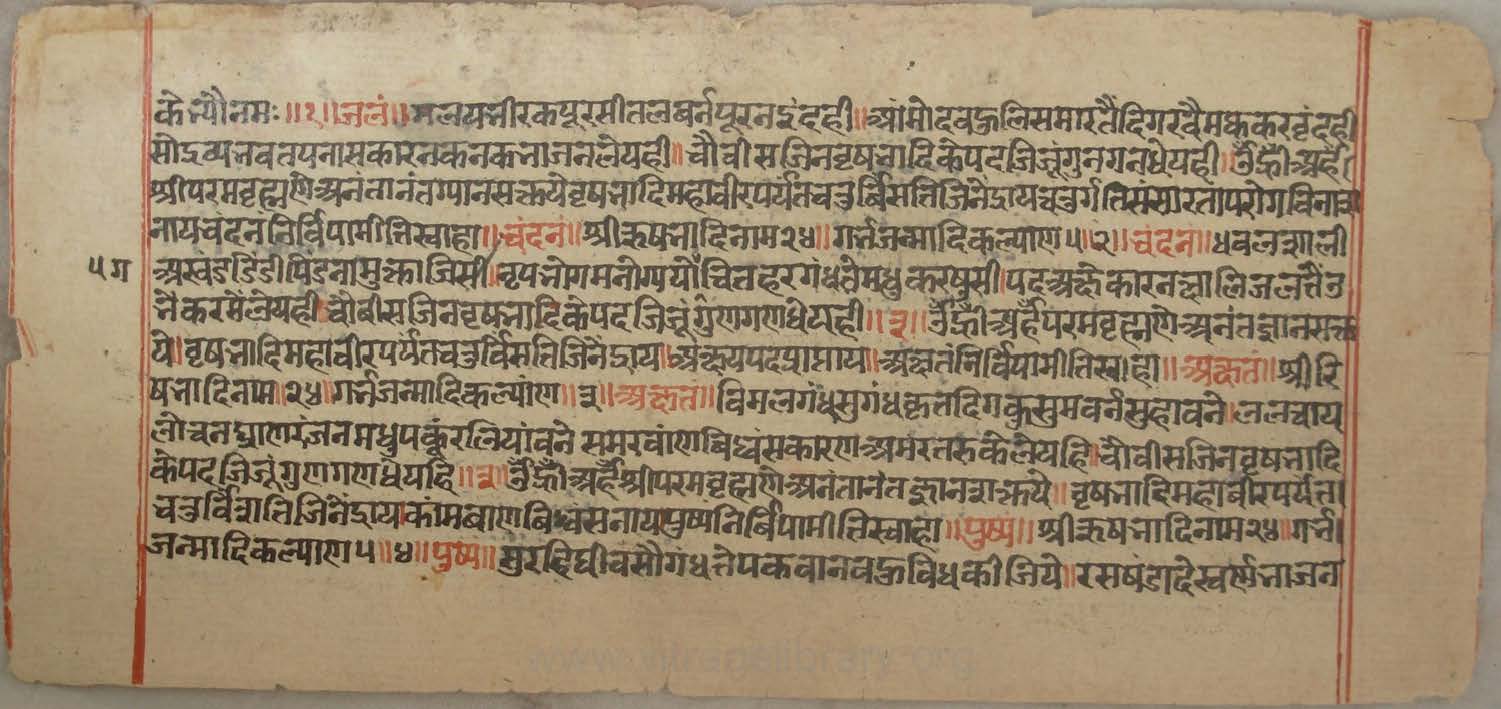 केभ्यौनमः॥१॥जलं॥मलयनीरकपूरसीतलबर्नपूरनइंदही॥आमोदवहुलिसमारतैंदिगरवैमकरवृंदही
सोद्रव्यभवतपनासकारनकनकभाजनलेयही॥चौवीसजिनवृषभादिकेपदजिजूंगुनगनधेयही॥र्उंह्रीँअर्हँ
श्रीपरमवृह्मणेअनंतानंतग्यानसक्तयेवृषभादिमहावीरपर्यंतचतुर्बिंसतिजिनेंद्रायचतुर्गतिसंसारतापरोगविनाश
नायचंदनंनिर्विपामीतिस्वाहा॥चंदनं॥श्रीऋषभादिनाम२४॥गर्भजन्मादिकल्याण५॥२॥चंदनं॥धवलशाली
५ग
अखंडडिंडीपिंडनामुक्ताजिसी॥नृपभोगमनोग्ययोंचितहरगंधतेमधुकरषुसी॥पदअक्षैकारनक्षालिजल
करमेंलेयही॥चौवीसजिनवृषभादिकेपदजिजूंगुणगणधेयही॥३॥र्उंह्रीँअर्हँपरमवृह्मणेअनंतज्ञानसक्त
ये॥वृषभादिमहावीरपर्यंतचतुर्विंसतिजिनेंद्राय॥अक्षयपदप्राप्ताय॥अक्षतंनिर्विपामीतिस्वाहा॥अक्षतं॥श्रीरि
षभादिनाम॥२४॥गर्भजन्मादिकल्यांण॥३॥अक्षत॥विमलगंधसुगंधकृतदिगकुसुमवर्नसुहावने॥ललचाय
लोचनघ्राणरंजनमधुपकूंरलियांवने॥समरवांणविध्वंसकारणअमरतरुकेलेयहि॥चौवीसजिनवृषभादि
केपदजिजूंगुणगणधेयहि॥३॥र्उंह्रीँअर्हँश्रीपरमवृह्मणेअनंतानंतज्ञानशक्तये॥वृषभादिमहावीरपर्यंत।
चतुर्विंशतिजिनेंद्राय।कांमबाणबिध्वंसनायपुष्पंनिर्विपामीतिस्वाहा॥पुष्पं॥श्रीऋषभादिनाम२४॥गर्भ।
जन्मादिकल्याण५॥४॥पुष्प॥सुरहिघीवसौगंधतेपकवानवहुविधकीजिये॥रसषंडदेस्वर्णभाजन